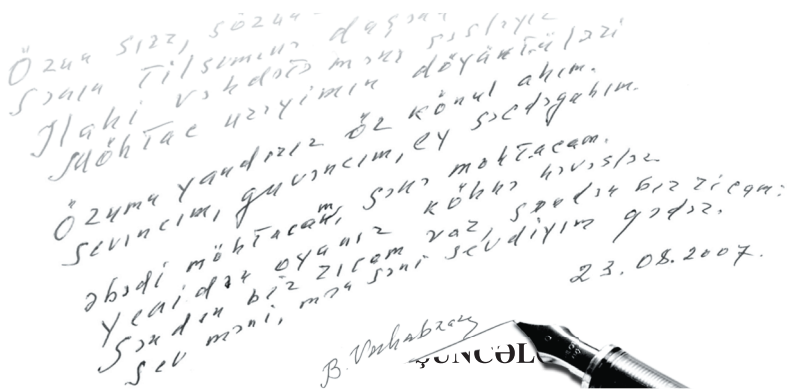 Özün sirr, sözün
Sənin tilsiminə daşan səsləyir
İlahi vəhdətə məni
Möhtac ürəyimin döyüntüləri
Özümü yandırır öz könül ahım.
Sevincim, güvəncim, ey səcdəgahım.
Əbədi möhtacam, sənə möhtacam.
Yenidən oyanır köhnə həvəslər
Səndən bir ricam var, səndən bir ricam:
Sev məni, mən səni sevdiyim qədər.
23.08.2007.
B. Vahabzadə
ŞÜNCƏL